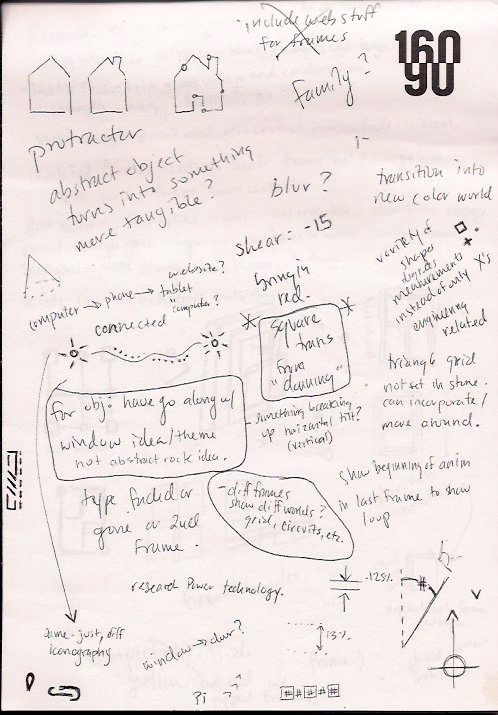 include web stuff
for frames
160
90
family?
protractor
abstract object
turns into something
more tangible?
blur?
transition into
new color world
shear: -15
variety of
shapes
degrees
measurements
instead of only
engineering
related
X's
website?
computer → phone → tablet
"computer?"
connected
bring in
red.
square
trans
from
"dawning"
triangle grid
not set in stone.
can incorporate/
move around.
for obj: have go along w/
window idea/theme
not abstract rock idea.
something breaking
up horizontal tilt?
(vertical)
type faded or
gone on 2nd
frame.
- diff frames
show diff worlds?
grid, circuits, etc.
show beginning of anim
in last frame to show
loop
research Power technology.
.125"
13%
same - just, diff
iconography
window → door?
Pi ?
# # # #